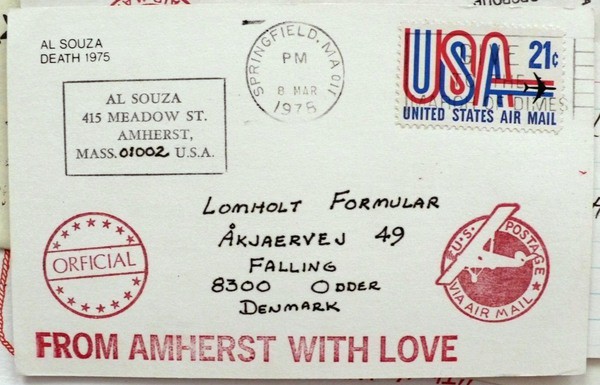 AL SOUZA
DEATH 1975
AL SOUZA
415 MEADOW ST.
AMHERST,
MASS. 01002 U.S.A.
SPRINGFIELD, MA 011
PM
8 MAR
1975
USA 21¢
UNITED STATES AIR MAIL
GIVE
TO THE
MARCH OF DIMES
LOMHOLT FORMULAR
ÅKJAERVEJ 49
FALLING
8300 ODDER
DENMARK
ORFICIAL
U.S. POSTAGE
VIA AIR MAIL
FROM AMHERST WITH LOVE